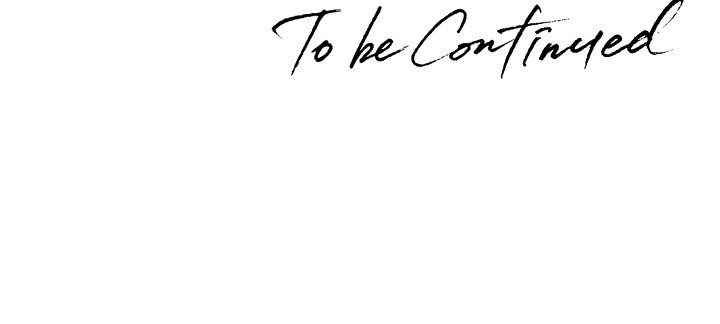 To be Continued